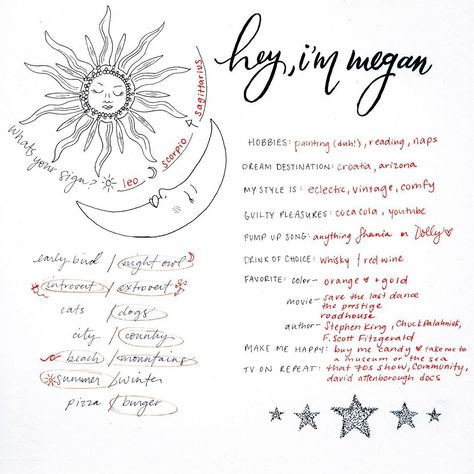 hey, i'm megan
What's your sign?
leo
scorpio
sagittarius
HOBBIES: painting (duh!), reading, naps
DREAM DESTINATION: croatia, arizona
MY STYLE IS: eclectic, vintage, comfy
GUILTY PLEASURES: coca cola, youtube
PUMP UP SONG: anything Shania or Dolly
DRINK OF CHOICE: whisky / red wine
FAVORITE: color - orange + gold
movie - save the last dance
the prestige
roadhouse
author - Stephen King, Chuck Palahniuk,
F. Scott Fitzgerald
MAKE ME HAPPY: buy me candy take me to
a museum or the sea
TV ON REPEAT: that 70s show, Community,
david attenborough docs
early bird / night owl
introvert / extrovert
cats / dogs
city / country
beach / mountains
summer / winter
pizza / burger